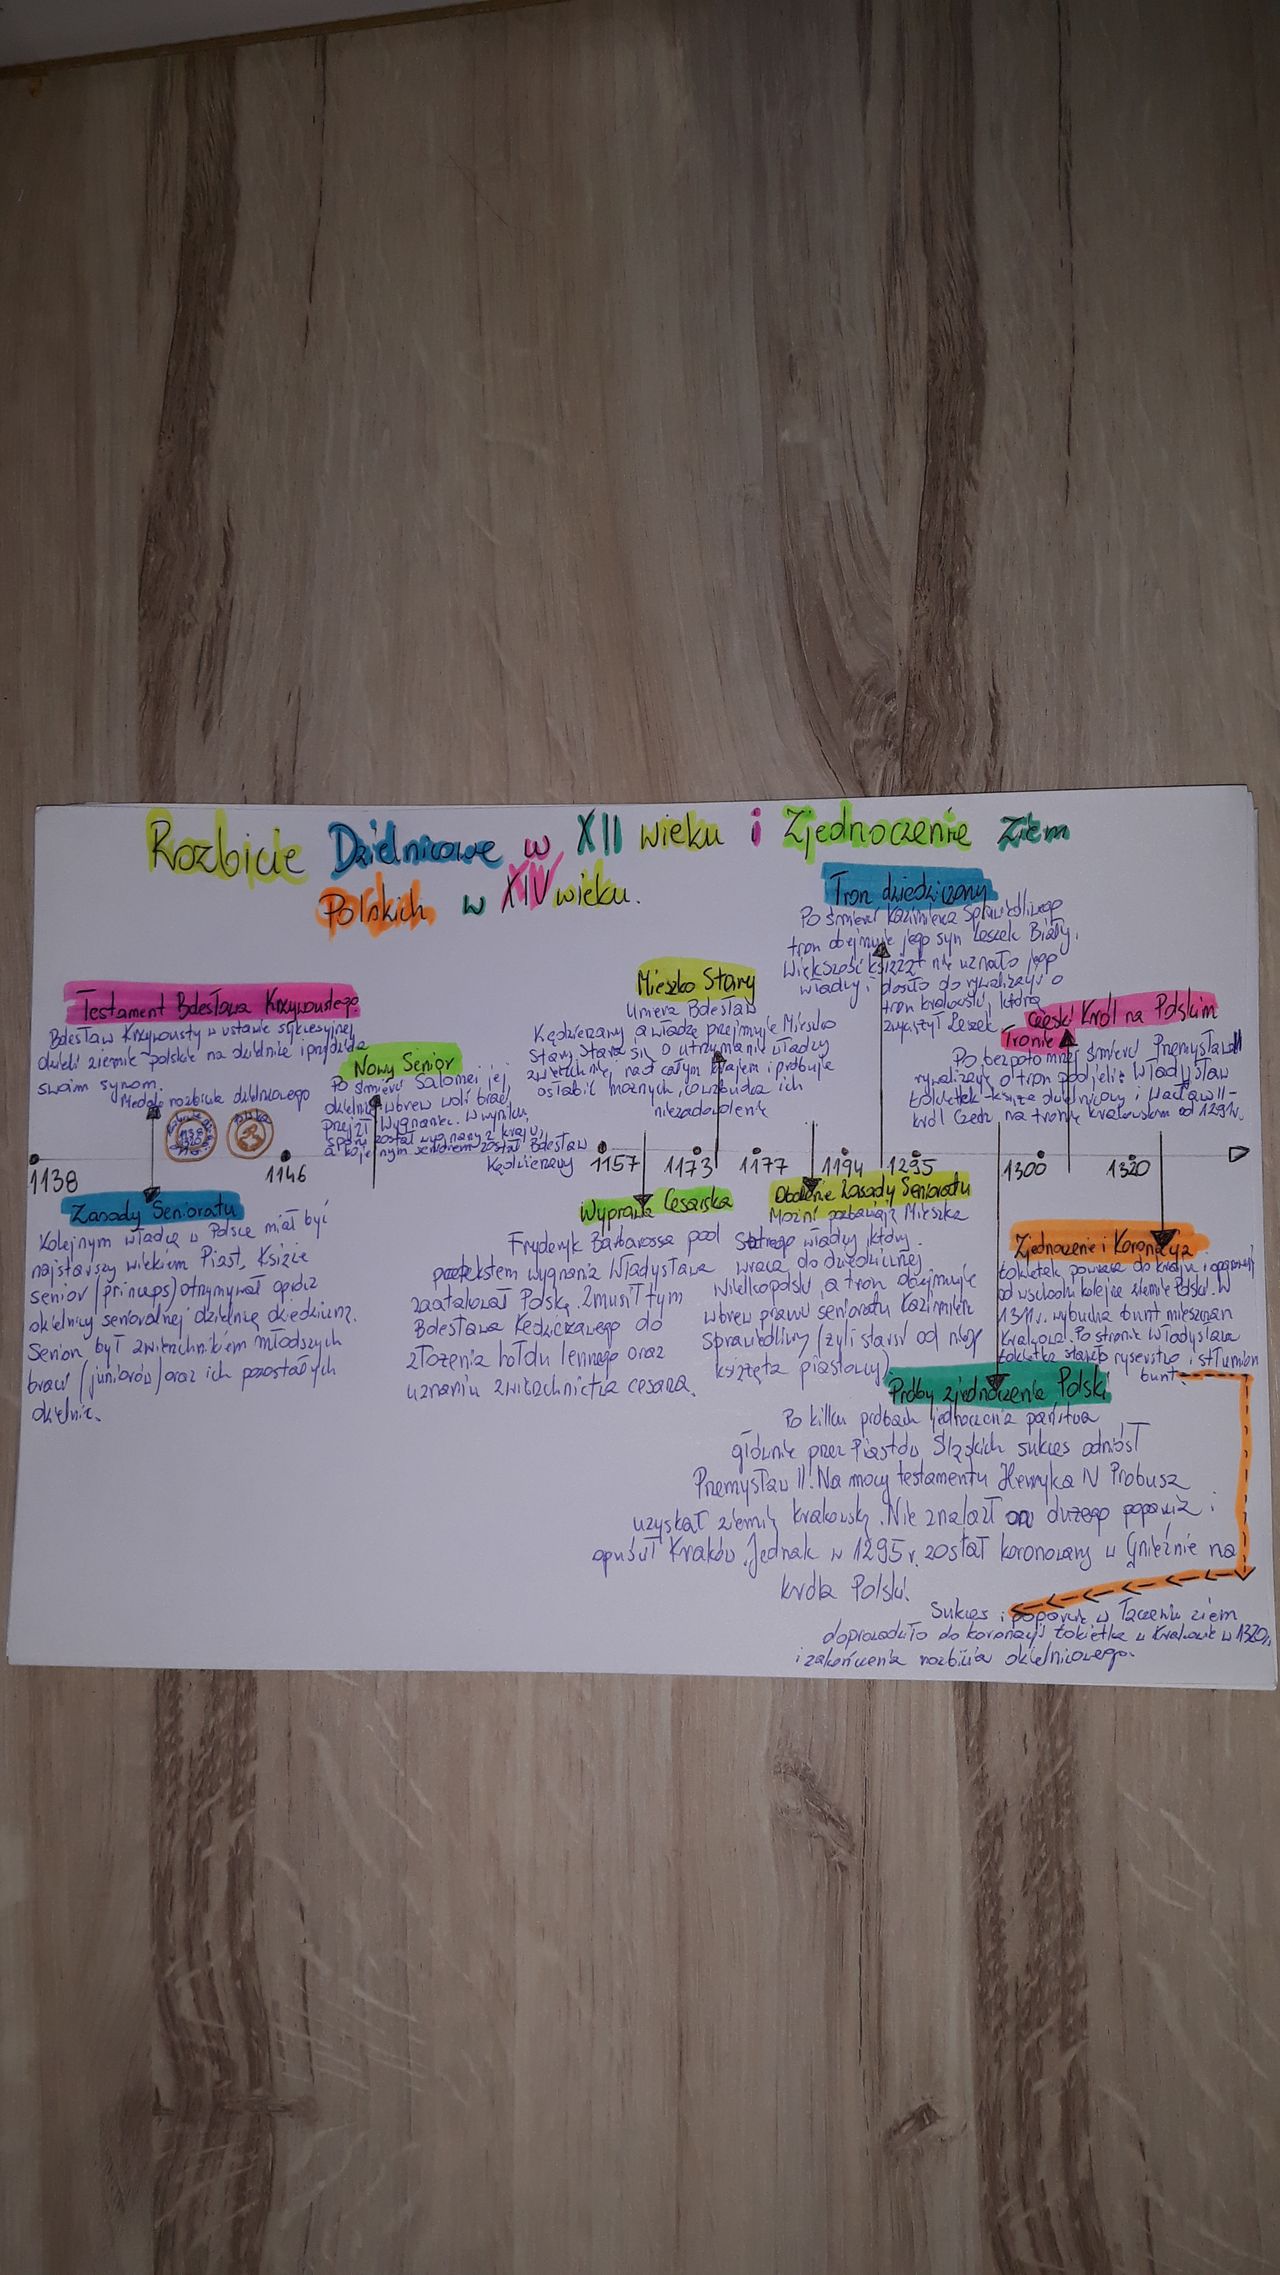 Rozbicie Dzielnicowe w XII wieku i Zjednoczenie Ziem
Polskich w XIV wieku.
Testament Bolesława Krzywoustego.
Bolesław Krzywousty w ustawie sukcesyjnej
dzieli ziemie polskie na dzielnice i przydziela
swoim synom.
rozbicia dzielnicowego
Nowy Senior
Po śmierci Salomei jej
dzielnicę wbrew woli braci
przejął Wygnaniec. W wyniku
sporu został wygnany z kraju,
a kolejnym seniorem został Bolesław
Kędzierzawy
Mieszko Stary
Umiera Bolesław
Kędzierzawy a władzę przejmuje Mieszko
Stary. Stara się o utrzymanie władzy
zwierzchniej nad całym krajem i próbuje
osłabić możnych, co wzbudza ich
niezadowolenie
Tron dziedziczony
Po śmierci Kazimierza Sprawiedliwego
tron obejmuje jego syn Leszek Biały.
Większość książąt nie uznało jego
władzy i doszło do rywalizacji o
tron krakowski, którą
zwyciężył Leszek
Czeski Król na Polskim
Tronie
Po bezpotomnej śmierci Przemysława II
rywalizację o tron podjęli: Władysław
Łokietek - książę dzielnicowy i Wacław II -
król Czech na tronie krakowskim od 1291r.
1138
1146
1157
1173
1177
1194
1295
1300
1320
Zasady Senioratu
Kolejnym władcą w Polsce miał być
najstarszy wiekiem Piast, Książę
senior (princeps) otrzymywał oprócz
dzielnicy senioralnej dzielnicę dziedziczną.
Senior był zwierzchnikiem młodszych
braci (juniorów) oraz ich pozostałych
dzielnic.
Wyprawa Cesarska
Fryderyk Barbarossa pod
pretekstem wygnania Władysława
zaatakował Polskę. Zmusił tym
Bolesława Kędzierzawego do
złożenia hołdu lennego oraz
uznania zwierzchnictwa cesarza.
Obalenie Zasady Senioratu
Możni pozbawiają Mieszka
Starego władzy, który
wraca do dziedzicznej
Wielkopolski, a tron obejmuje
wbrew prawu senioratu Kazimierz
Sprawiedliwy (żyli starsi od niego
książęta piastowscy)
Próby zjednoczenia Polski
Po kilku próbach jednoczenia państwa
głównie przez Piastów Śląskich sukces odniósł
Przemysław II. Na mocy testamentu Henryka IV Probusa
uzyskał ziemię krakowską. Nie znalazł on dużego poparcia i
opuścił Kraków. Jednak w 1295 r. został koronowany w Gnieźnie na
króla Polski.
Zjednoczenie i Koronacja
Łokietek powraca do kraju i opanowuje
od wschodu kolejne ziemie Polski. W
1311r. wybucha bunt mieszczan
Krakowa. Po stronie Władysława
Łokietka stanęło rycerstwo i stłumiono
bunt.
Sukces i poparcie w łączeniu ziem
doprowadziło do koronacji Łokietka w Krakowie w 1320r.
i zakończenia rozbicia dzielnicowego.